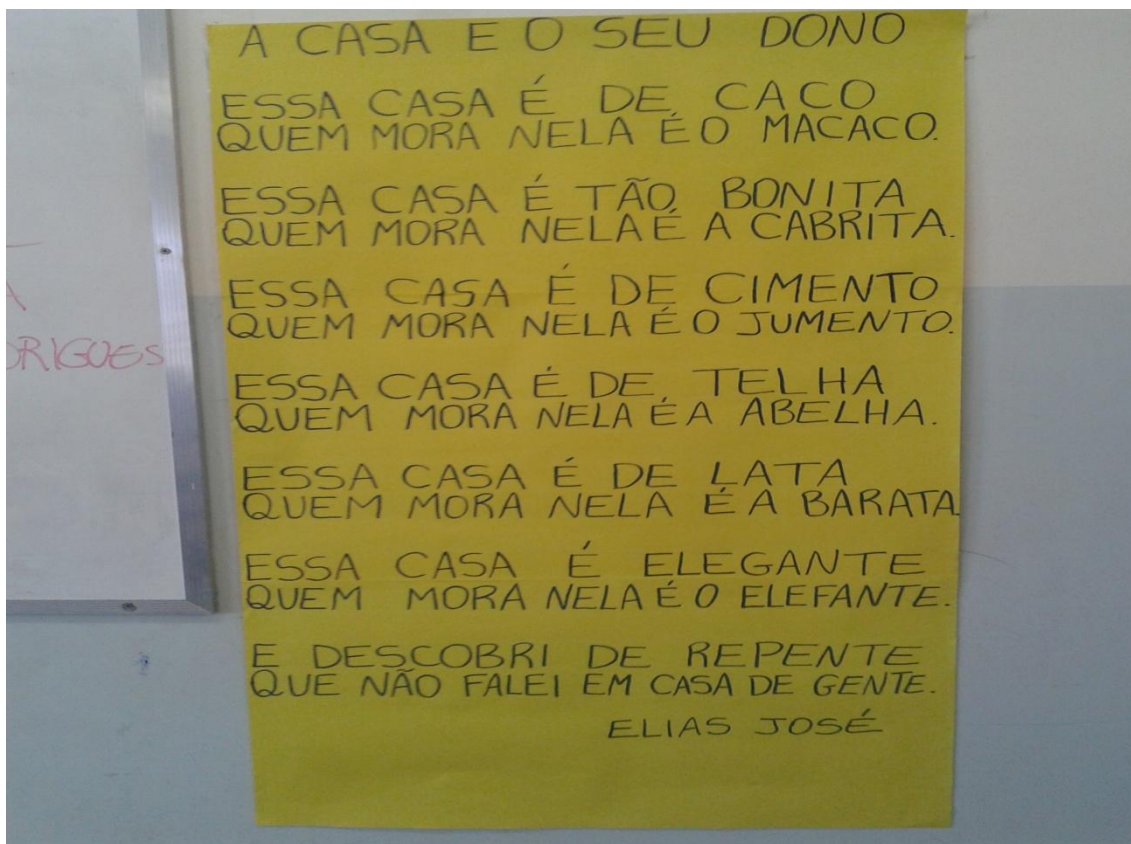 A CASA E O SEU DONO
ESSA CASA É DE CACO
QUEM MORA NELA É O MACACO.
ESSA CASA É TÃO BONITA
QUEM MORA NELA É A CABRITA.
ESSA CASA É DE CIMENTO
QUEM MORA NELA É O JUMENTO.
ESSA CASA É DE TELHA
QUEM MORA NELA É A ABELHA.
ESSA CASA É DE LATA
QUEM MORA NELA É A BARATA
ESSA CASA É ELEGANTE
QUEM MORA NELA É O ELEFANTE.
E DESCOBRI DE REPENTE
QUE NÃO FALEI EM CASA DE GENTE.
ELIAS JOSÉ